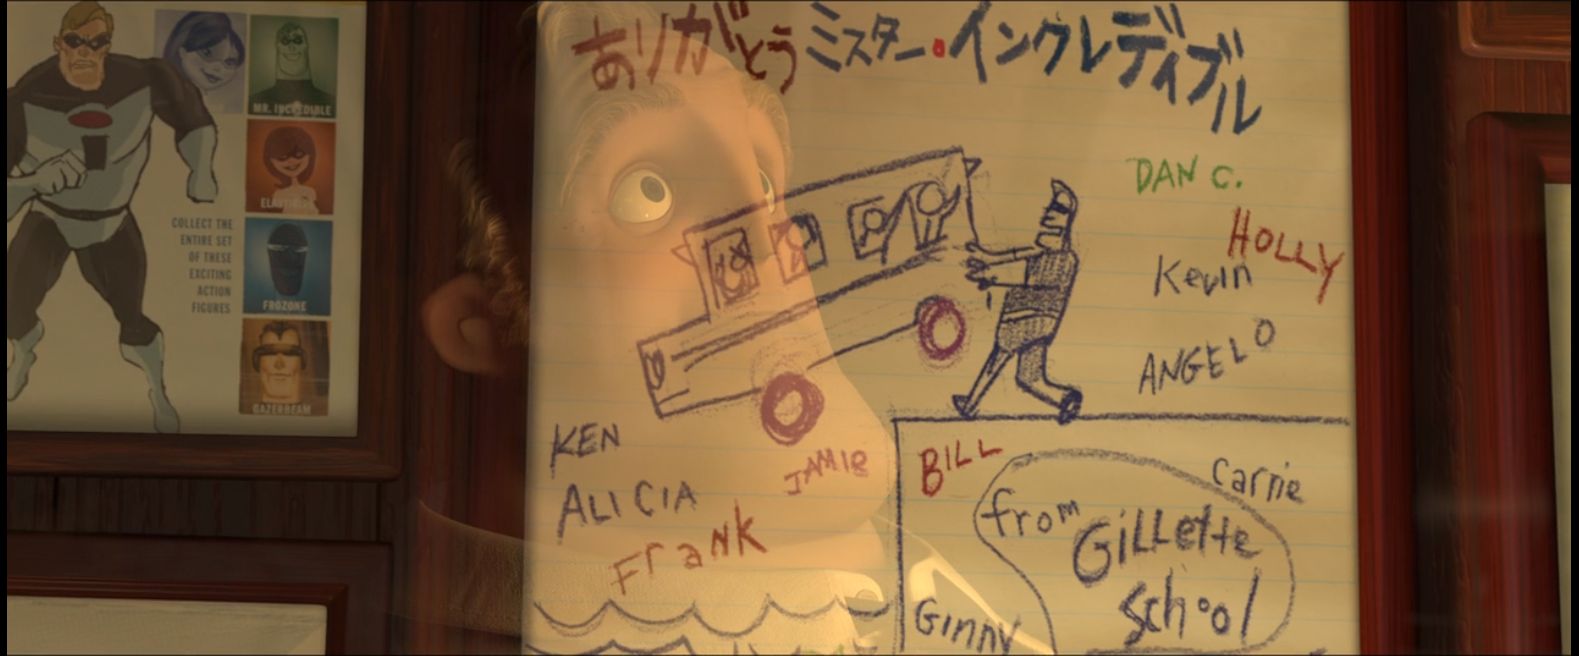 MR. INCREDIBLE
ELASTIGIRL
COLLECT THE
ENTIRE SET
OF THESE
EXCITING
ACTION
FIGURES
FROZONE
GAZERBEAM
ありがとうミスター・インクレディブル
DAN C.
HOLLY
Kevin
ANGELO
KEN
ALICIA
JAMIE
FranK
BILL
Carrie
from
Gillette
School
Ginny